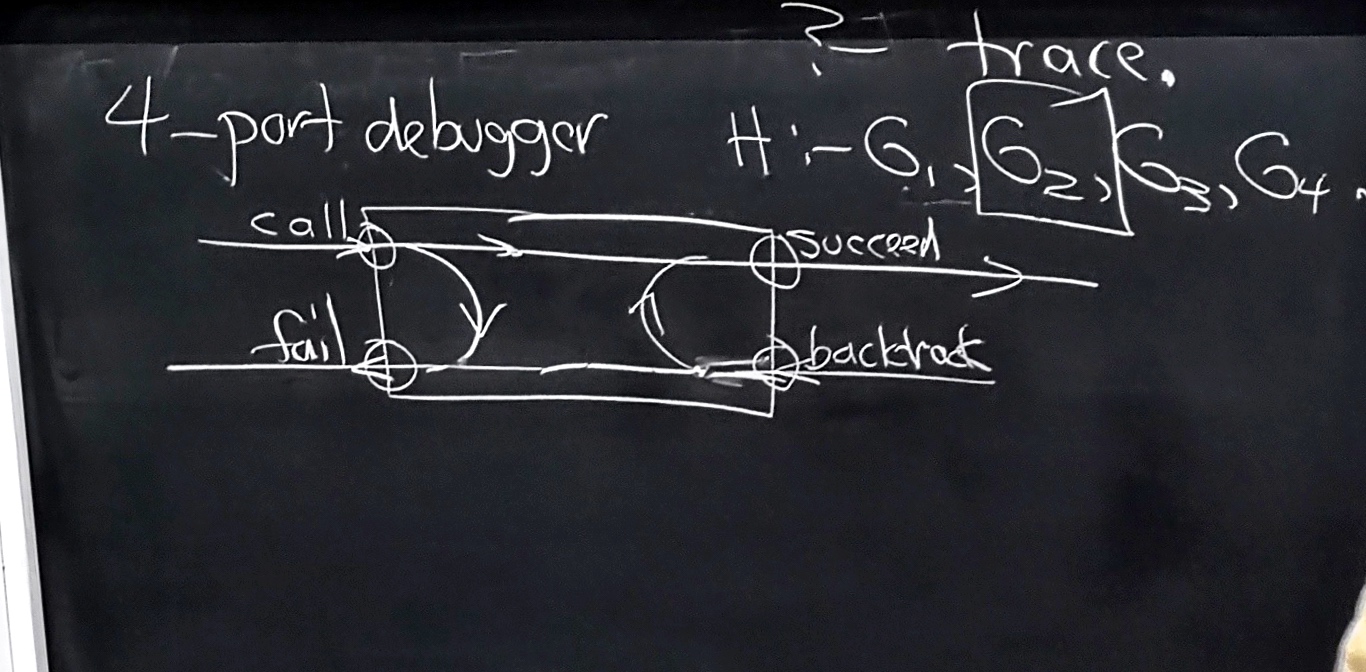 ?- trace.
4-port debugger
H :- G1, G2, G3, G4.
call
succeed
fail
backtrack